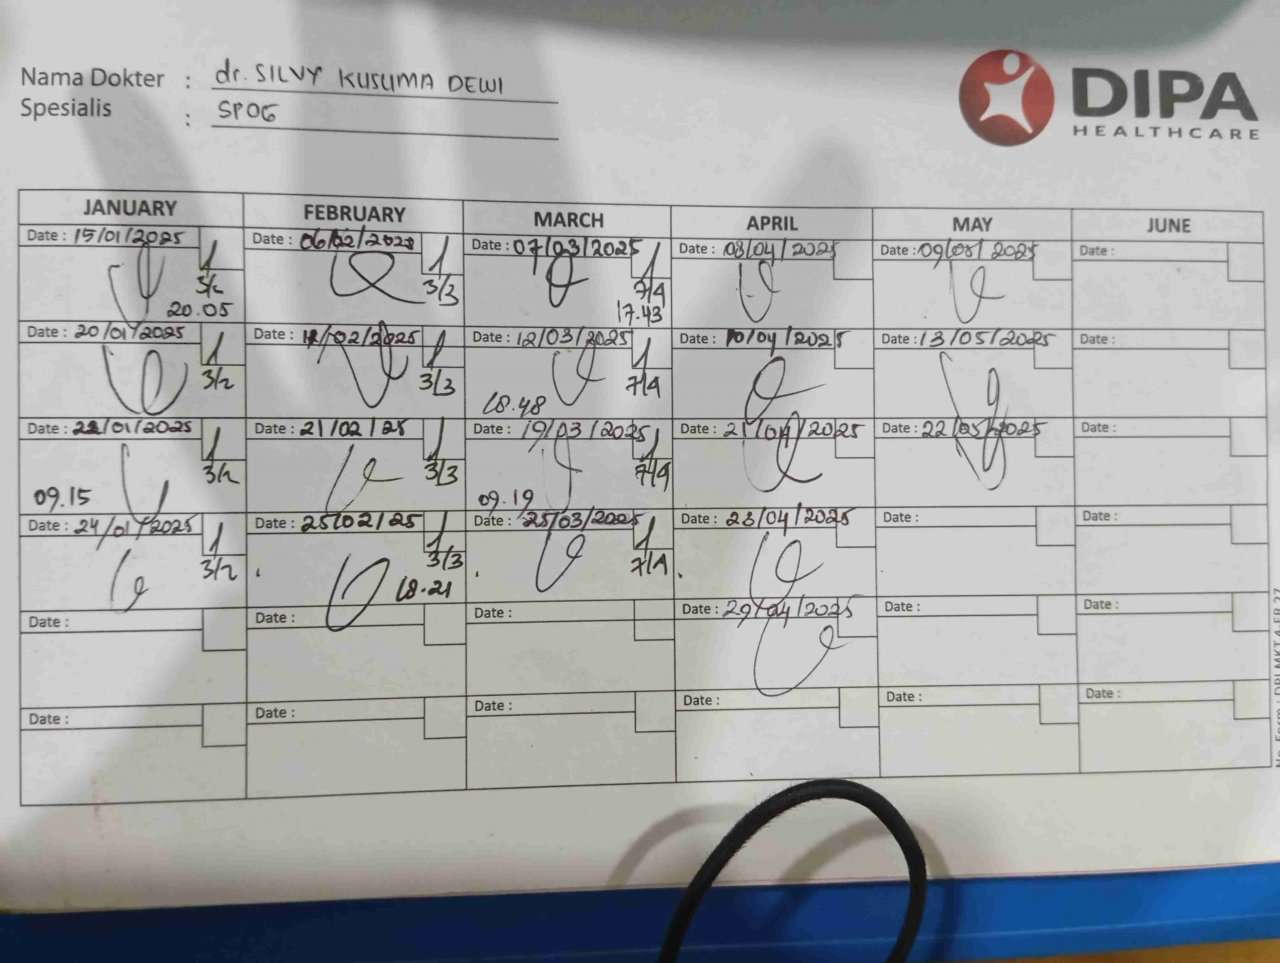 Nama Dokter : dr. SILVY KUSUMA DEWI
Spesialis : SPOG
DIPA
HEALTHCARE
JANUARY FEBRUARY MARCH APRIL MAY JUNE
Date : 15/01/2025 Date : 06/02/2025 Date : 07/03/2025 Date : 08/04/2025 Date : 09/05/2025 Date :
3/2 3/3 7/4
20.05 17.43
Date : 20/01/2025 Date : /02/2025 Date : 12/03/2025 Date : 10/04/2025 Date : 13/05/2025 Date :
3/2 3/3 7/4
18.48
Date : 22/01/2025 Date : 21/02/25 Date : 19/03/2025 Date : 21/04/2025 Date : 22/05/2025 Date :
3/2 3/3 7/4
09.15 09.19
Date : 24/01/2025 Date : 25/02/25 Date : 25/03/2025 Date : 23/04/2025 Date : Date :
3/2 3/3 7/4
18.21
Date : Date : Date : Date : 29/04/2025 Date : Date :
Date : Date : Date : Date : Date : Date :